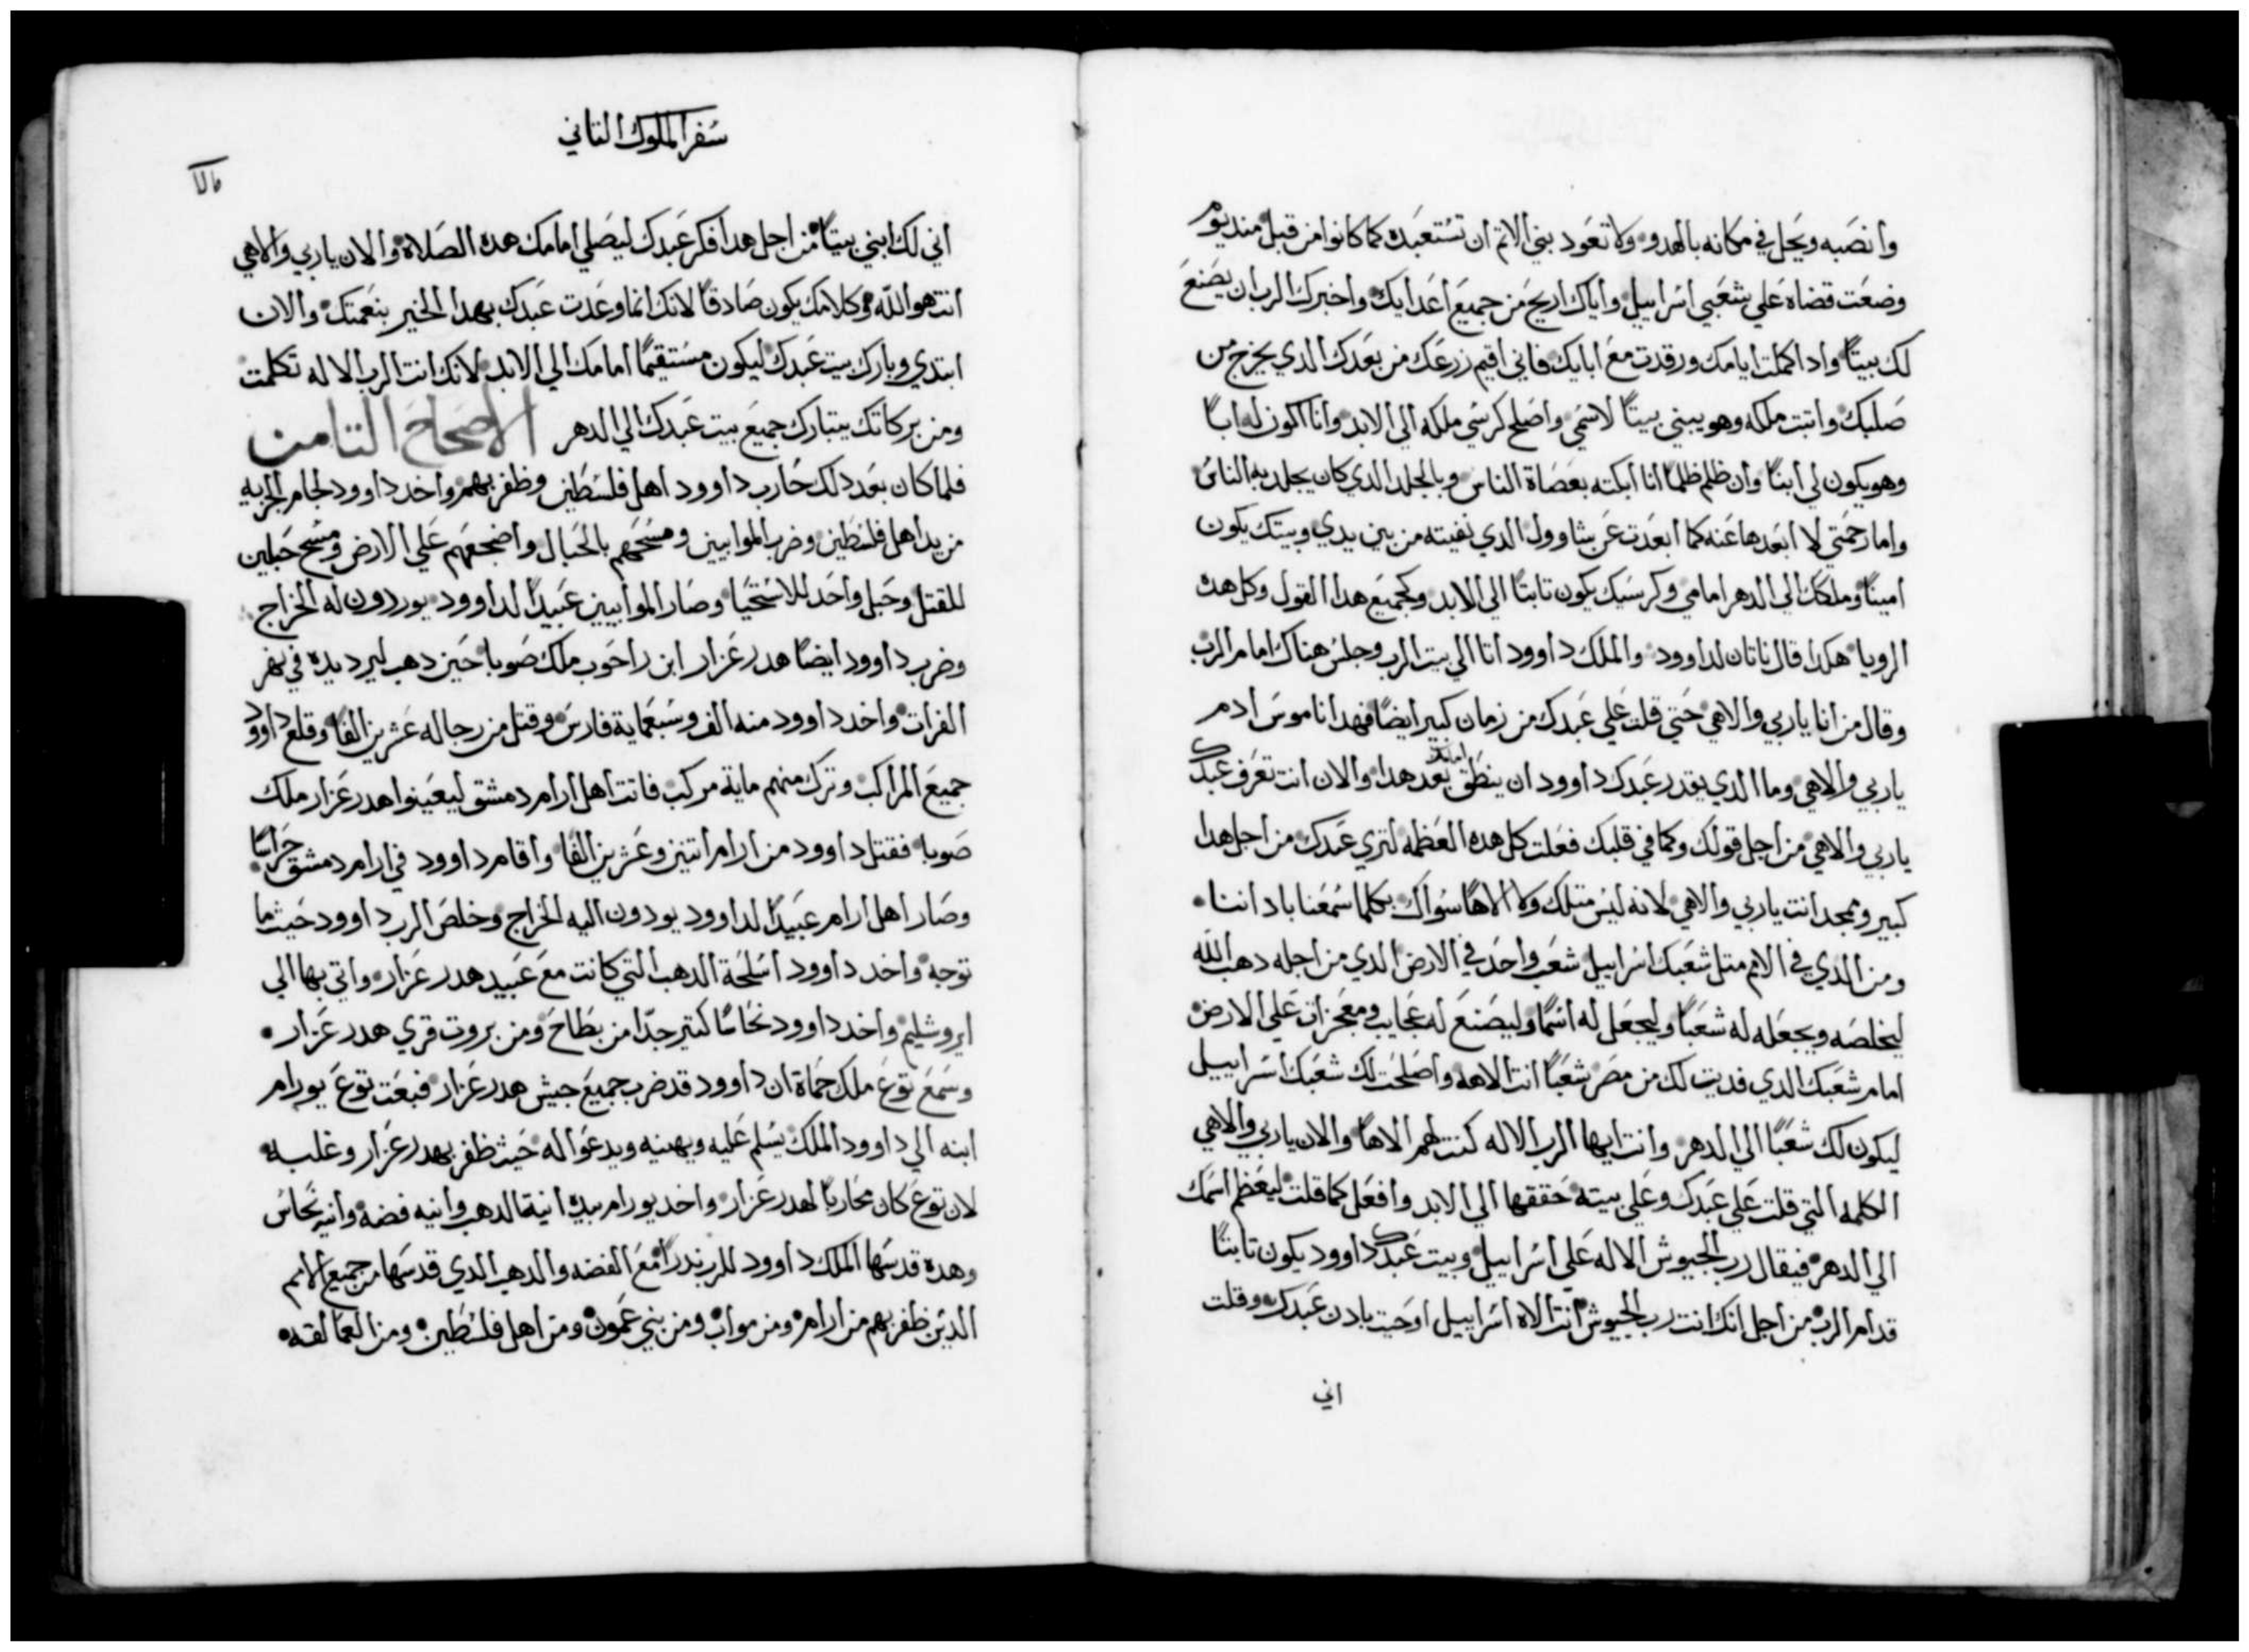 وانصبه ويحل في مكانه بالهدو ولا تعود بني الاتم ان تستعبده كما كانوا من قبل مند يوم
وضعت قضاه علي شعبي اسراييل واياك اريح من جميع اعدايك واخبرك الرب ان يصنع
لك بيتًا وادا كملت ايامك ورقدت مع ابايك فاني اقيم زرعك من بعدك الدي يخرج من
صلبك واتبت ملكه وهو يبني بيتًا لاسمي واصلح كرسي ملكه الي الابد وانا اكون له ابًا
وهو يكون لي ابنًا وان ظلم ظلمًا انا ابكته بعصاة الناس وبالجلد الدي كان يجلد به الناس
واما رحمتي لا ابعدها عنه كما ابعدت عن شاوول الدي نفيته من بين يدي وبيتك يكون
امينًا وملكك الي الدهر امامي وكرسيك يكون تابتًا الي الابد وكجميع هدا القول وكل هده
الرويا هكدا قال ناتان لداوود والملك داوود اتا الي بيت الرب وجلس هناك امام الرب
وقال من انا ياربي والاهي حتي قلت علي عبدك من زمان كبير ايضًا فهدا ناموس ادم
ياربي والاهي وما الدي يقدر عبدك داوود ان ينطق بعد هدا والان انت تعرف عبدك
ياربي والاهي من اجل قولك وكما في قلبك فعلت كل هده العظمه لتري عبدك من اجل هدا
كبير وممجد انت ياربي والاهي لانه ليس متلك ولا الاهًا سواك بكلما سمعنا باداننا
ومن الدي في الامم متل شعبك اسراييل شعب واحد في الارض الدي من اجله دهب الله
ليخلصه ويجعله له شعبًا وليجعل له اسمًا وليصنع له عجايب ومعجزات علي الارض
امام شعبك الدي فديت لك من مصر شعبًا انت الاهه واصلحت لك شعبك اسراييل
ليكون لك شعبًا الي الدهر وانت ايها الرب الاله كنت لهم الاهًا والان ياربي والاهي
الكلمه التي قلت علي عبدك وعلي بيته حققها الي الابد وافعل كما قلت ليعظم اسمك
الي الدهر فيقال رب الجيوش الاله علي اسراييل وبيت عبدك داوود يكون تابتًا
قدام الرب من اجل انك انت رب الجيوش انت الاه اسراييل اوحيت بادن عبدك وقلت
اني
سفر الملوك التاني
اني لك ابني بيتًا من اجل هدا فكر عبدك ليصلي امامك هده الصلاة والان ياربي والاهي
انت هو الله وكلامك يكون صادقًا لانك انما وعدت عبدك بهدا الخير بنعمتك والان
ابتدي وبارك بيت عبدك ليكون مستقيمًا امامك الي الابد لانك انت الرب الاله تكلمت
ومن بركاتك يتبارك جميع بيت عبدك الي الدهر الاصحاح التامن
فلما كان بعد دلك حارب داوود اهل فلسطين وظفر بهم واخد داوود لجام الجزيه
من يد اهل فلسطين وضرب الموابيين ومسحهم بالحبال واضجعهم علي الارض ومسح حبلين
للقتل وحبل واحد للاستحيا وصار الموابيين عبيدًا لداوود يوردون له الخراج
وضرب داوود ايضًا هدرعزار ابن راحوب ملك صوبا حين دهب ليرد يده في نهر
الفرات واخد داوود منه الف وسبعماية فارس وقتل من رجاله عشرين الفًا وقلع داوود
جميع المراكب وترك منهم ماية مركب فاتت اهل ارام دمشق ليعينوا هدرعزار ملك
صوبا فقتل داوود من ارام اتنين وعشرين الفًا واقام داوود في ارام دمشق حراسًا
وصار اهل ارام عبيدًا لداوود يودون اليه الخراج وخلص الرب داوود حيث ما
توجه واخد داوود اسلحة الدهب التي كانت مع عبيد هدرعزار واتي بها الي
ايروشليم واخد داوود نحاسًا كتير جدًا من بطاح ومن بروت قري هدرعزار
وسمع توع ملك حماة ان داوود قد ضرب جميع جيش هدرعزار فبعت توع يورام
ابنه الي داوود الملك يسلم عليه ويهنيه ويدعوا له حيث ظفر بهدرعزار وغلبه
لان توع كان محاربًا لهدرعزار واخد يورام بيده انية الدهب وانيه فضه وانيه نحاس
وهده قدسها الملك داوود للرب ندرًا مع الفضه والدهب الدي قدسها من جميع الامم
الدين ظفر بهم من ارام ومن مواب ومن بني عمون ومن اهل فلسطين ومن العمالقه